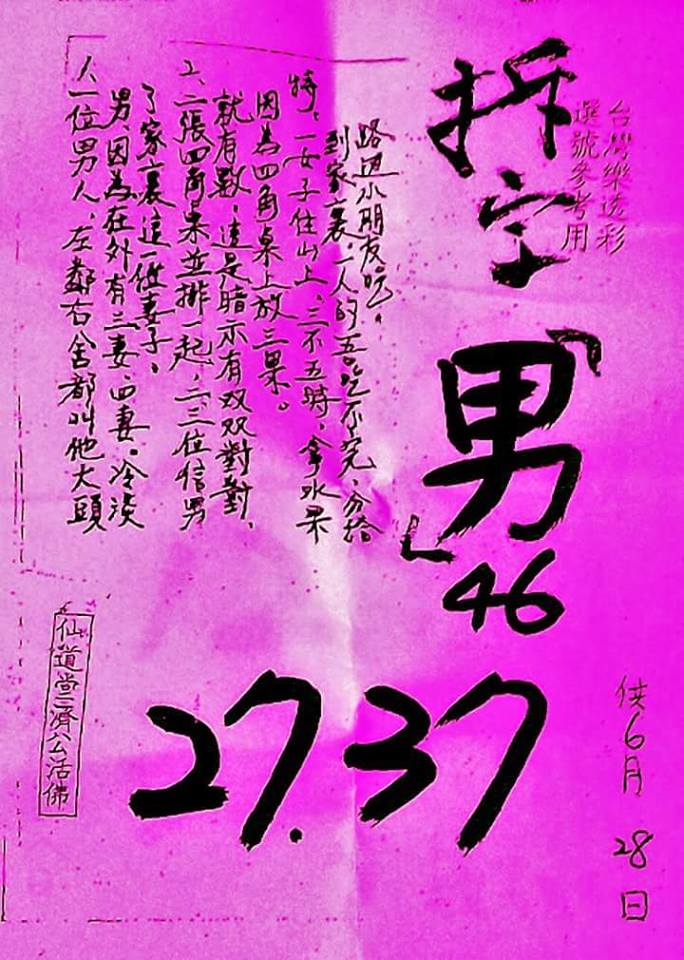 台灣樂透彩
選號參考用
拆字
「男」
46
27.37
供6月28日
1、一位男人,左鄰右舍都叫他大頭
男,因為在外有三妻、四妻。冷淡
了家裏這一位妻子。
2、二張四角桌並排一起,二、三位信男
就有數,這是暗示有双双對對,
因為四角桌上放三果。
特:一女子住山上,三不五時,拿水果
到家裏,一人的吾吃不完,分給
路過小朋友吃。
仙道堂濟公活佛